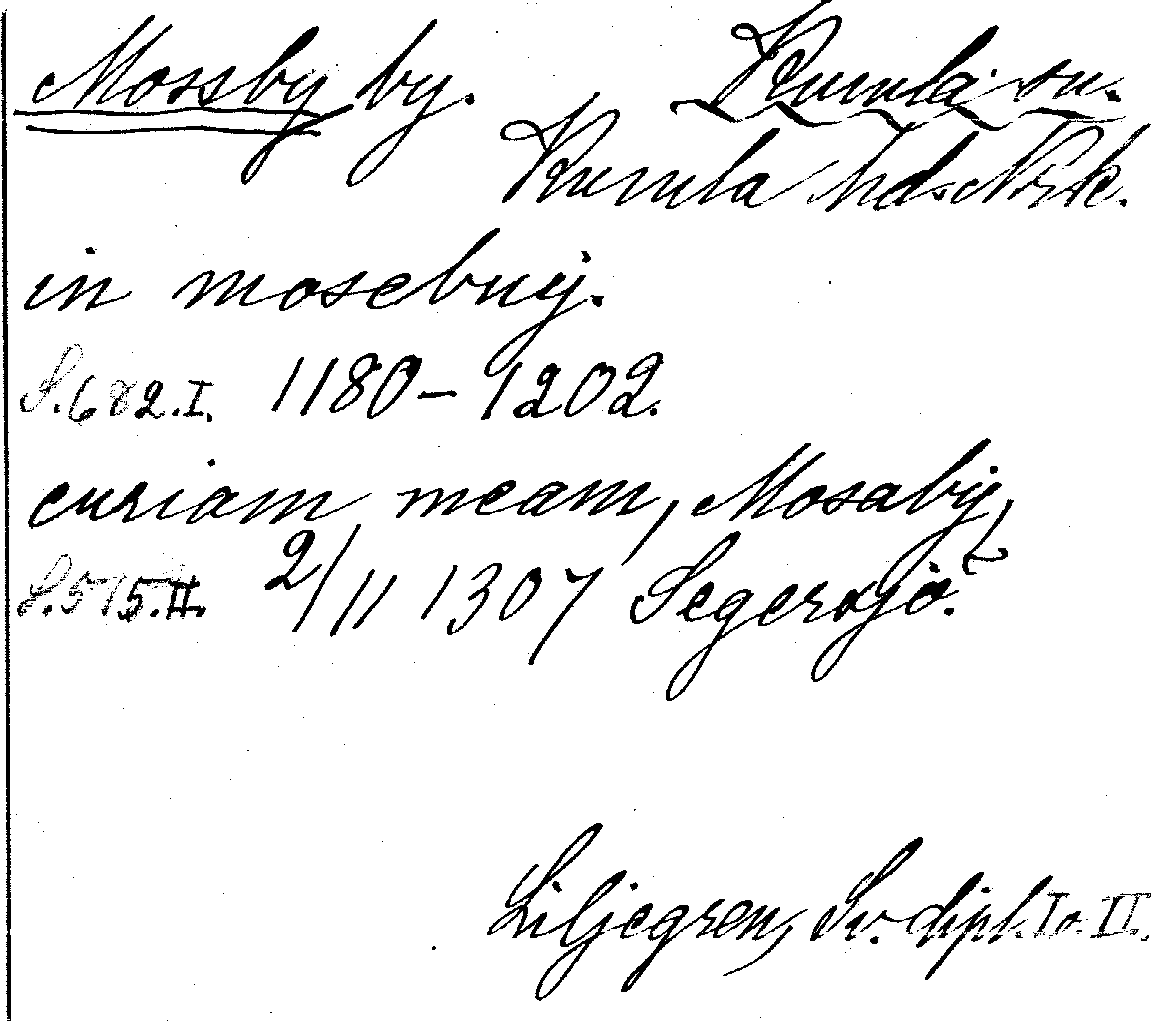 Mossby by. Kumla sn.
Kumla hd. Närk.
in mosebuij.
S. 682. I. 1180–1202.
curiam meam, Mosaby,
S. 515. II. 2/11 1307 Segersjö.
Liljegren, Sv. dipl. I o. II.